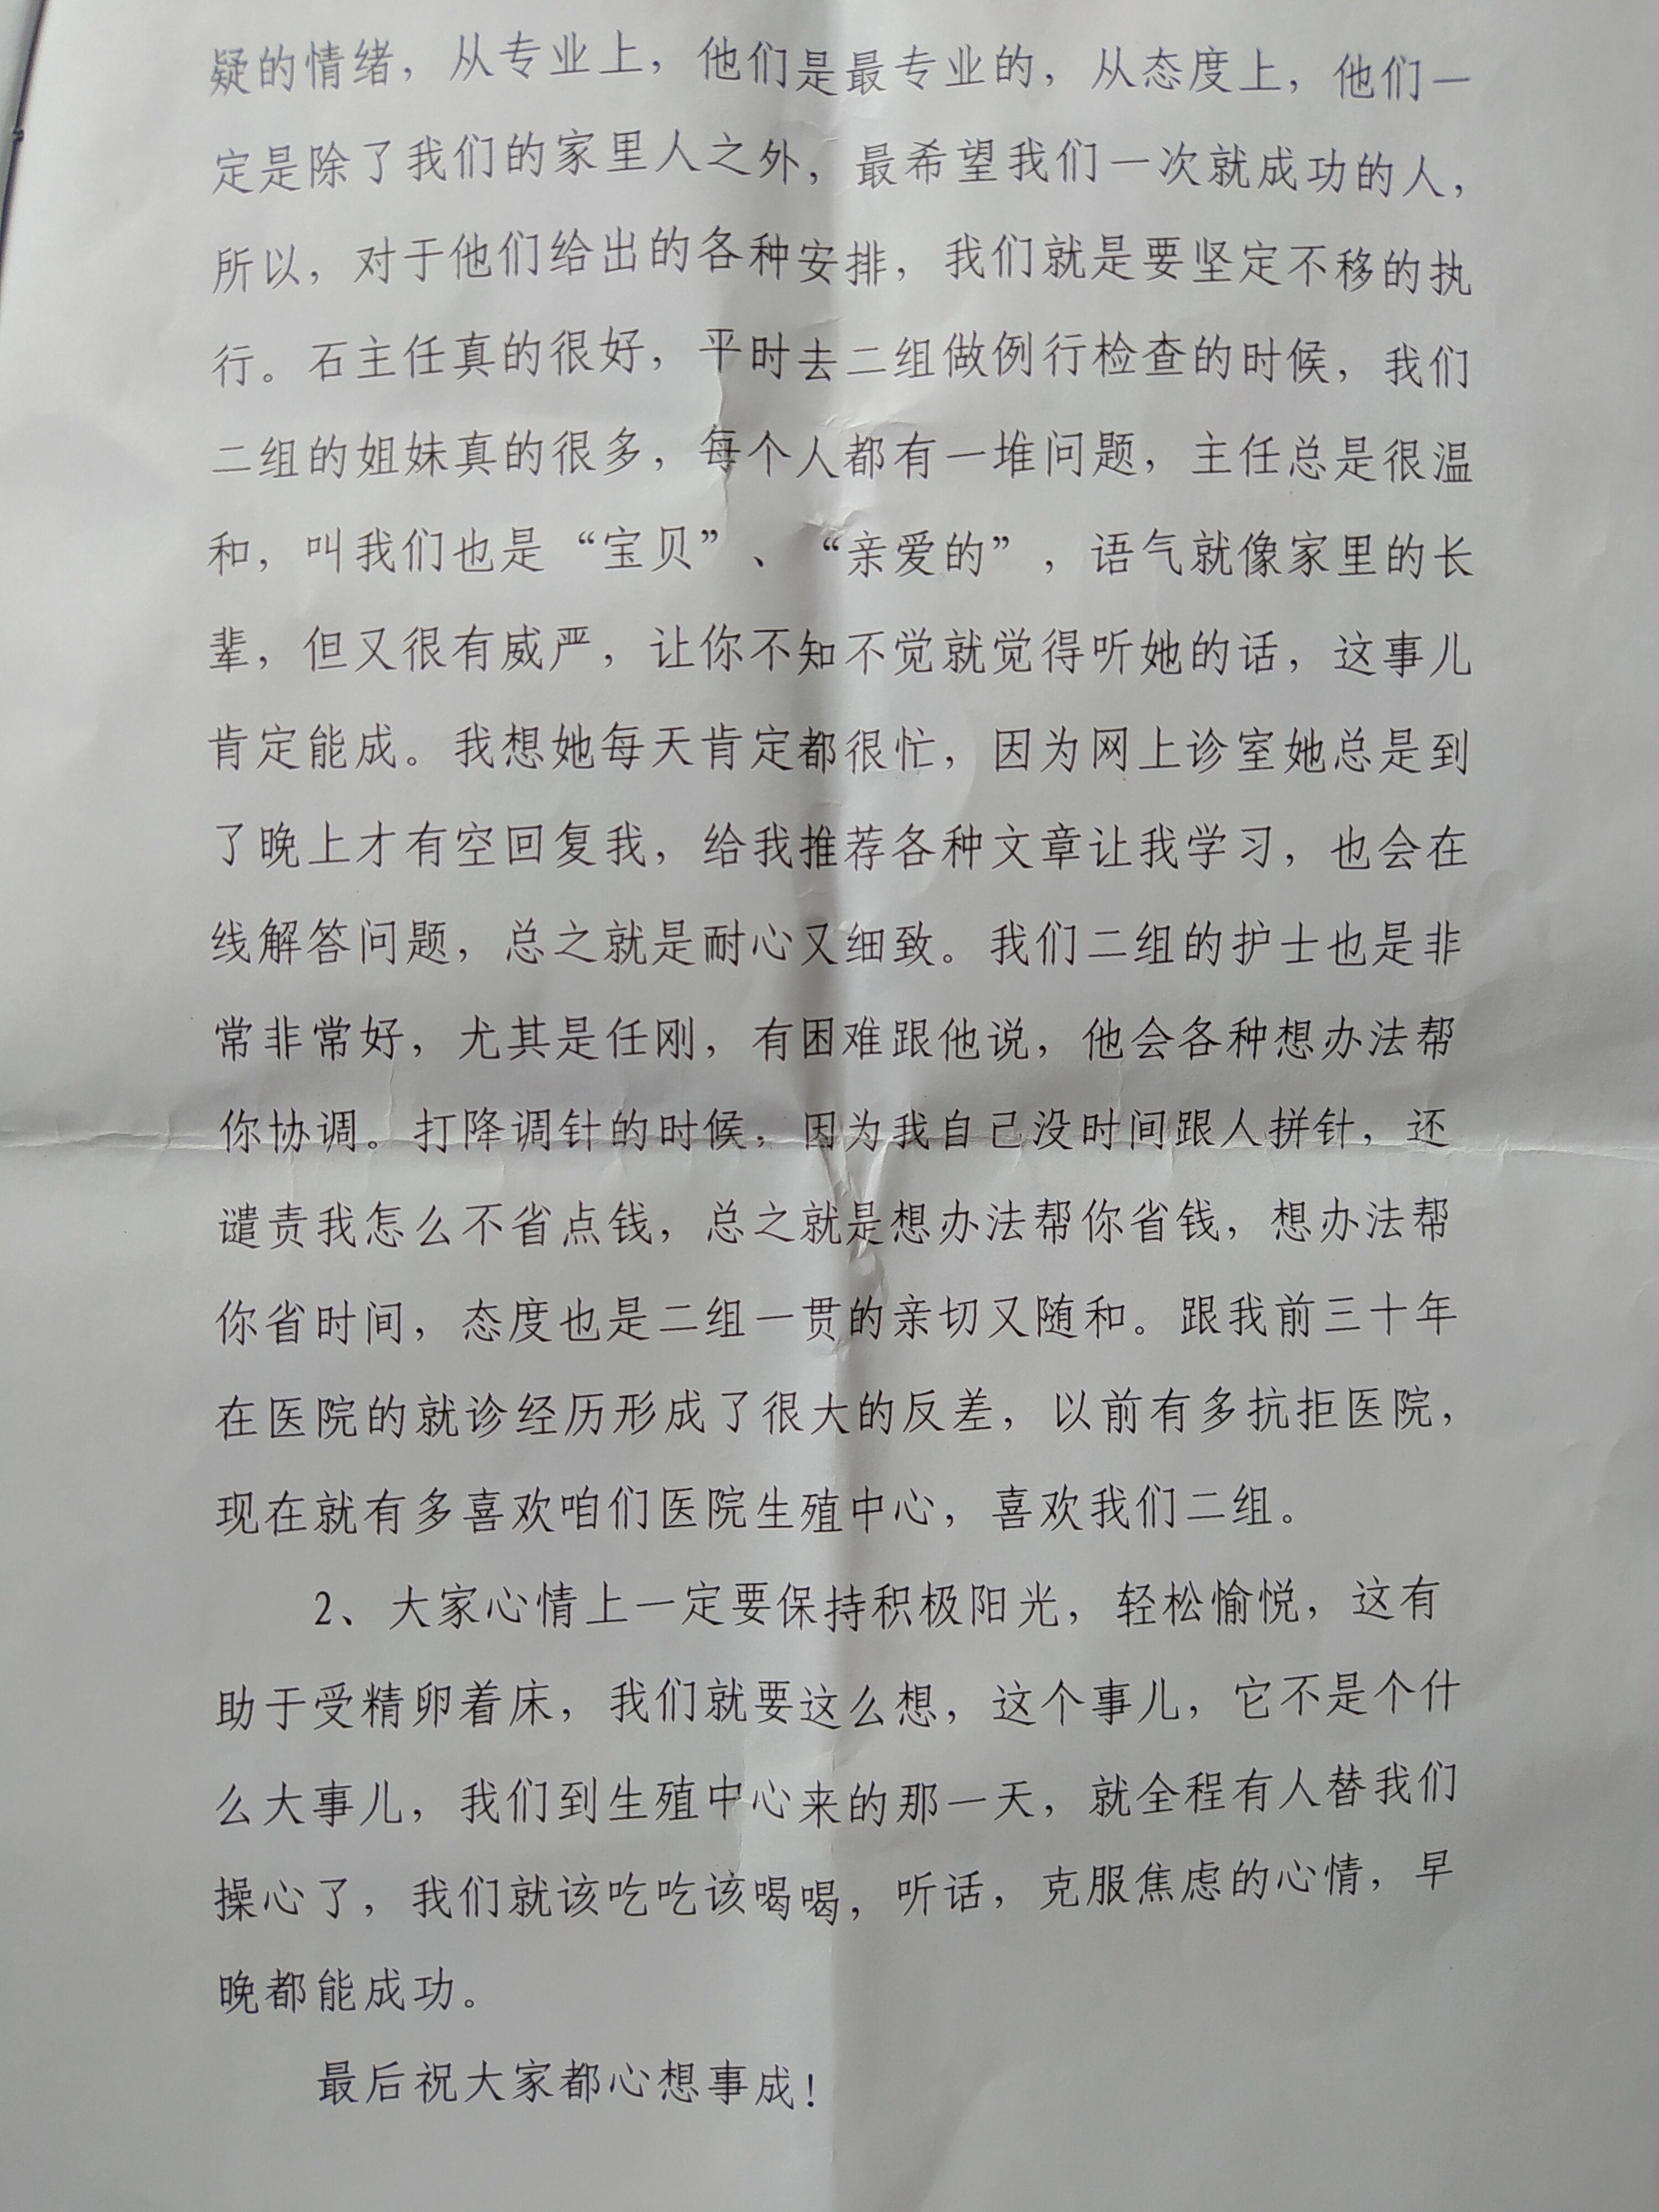 疑的情绪，从专业上，他们是最专业的，从态度上，他们一
定是除了我们的家里人之外，最希望我们一次就成功的人，
所以，对于他们给出的各种安排，我们就是要坚定不移的执
行。石主任真的很好，平时去二组做例行检查的时候，我们
二组的姐妹真的很多，每个人都有一堆问题，主任总是很温
和，叫我们也是“宝贝”、“亲爱的”，语气就像家里的长
辈，但又很有威严，让你不知不觉就觉得听她的话，这事儿
肯定能成。我想她每天肯定都很忙，因为网上诊室她总是到
了晚上才有空回复我，给我推荐各种文章让我学习，也会在
线解答问题，总之就是耐心又细致。我们二组的护士也是非
常非常好，尤其是任刚，有困难跟他说，他会各种想办法帮
你协调。打降调针的时候，因为我自己没时间跟人拼针，还
谴责我怎么不省点钱，总之就是想办法帮你省钱，想办法帮
你省时间，态度也是二组一贯的亲切又随和。跟我前三十年
在医院的就诊经历形成了很大的反差，以前有多抗拒医院，
现在就有多喜欢咱们医院生殖中心，喜欢我们二组。
2、大家心情上一定要保持积极阳光，轻松愉悦，这有
助于受精卵着床，我们就要这么想，这个事儿，它不是个什
么大事儿，我们到生殖中心来的那一天，就全程有人替我们
操心了，我们就该吃吃该喝喝，听话，克服焦虑的心情，早
晚都能成功。
最后祝大家都心想事成！